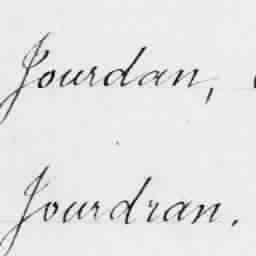 Jourdan,
Jourdran.